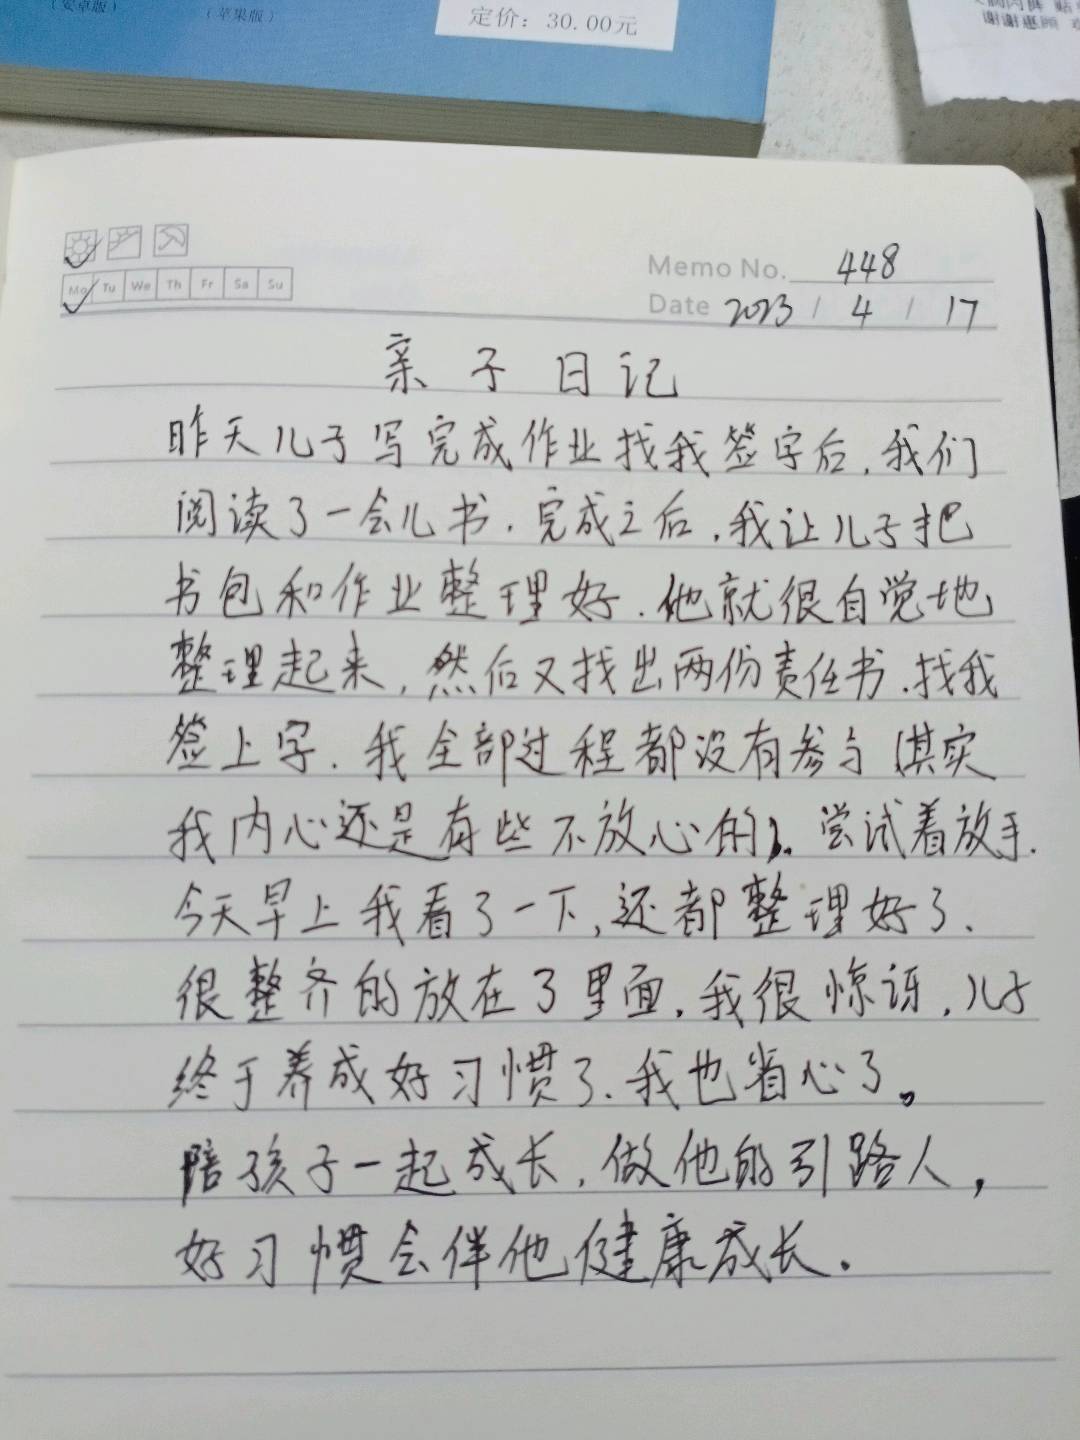 （安卓版）
（苹果版）
定价：30.00元
谢谢惠顾
Memo No. 448
Mo Tu We Th Fr Sa Su
Date 2023 / 4 / 17
亲子日记
昨天儿子写完成作业找我签字后，我们
阅读了一会儿书．完成之后，我让儿子把
书包和作业整理好．他就很自觉地
整理起来，然后又找出两份责任书．找我
签上字．我全部过程都没有参与（其实
我内心还是有些不放心的）．尝试着放手．
今天早上我看了一下，还都整理好了．
很整齐的放在了里面．我很惊讶．儿子
终于养成好习惯了．我也省心了。
陪孩子一起成长．做他的引路人，
好习惯会伴他健康成长．